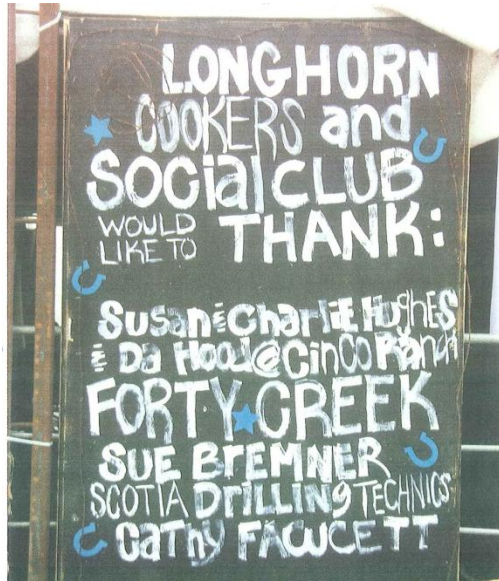 LONGHORN
COOKERS and
SOCial CLUB
WOULD
LIKE TO
THANK:
Susan & CharliE HughES
& Da Hood@CinCo RanCh
FORTY CREEK
SUE BREMNER
SCOTIA DrilliNg TECHNICS
CaThy FAWCETT